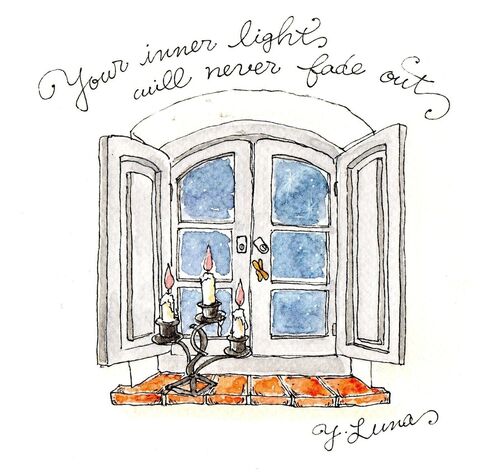 Your inner light
will never fade out
Y. Luna